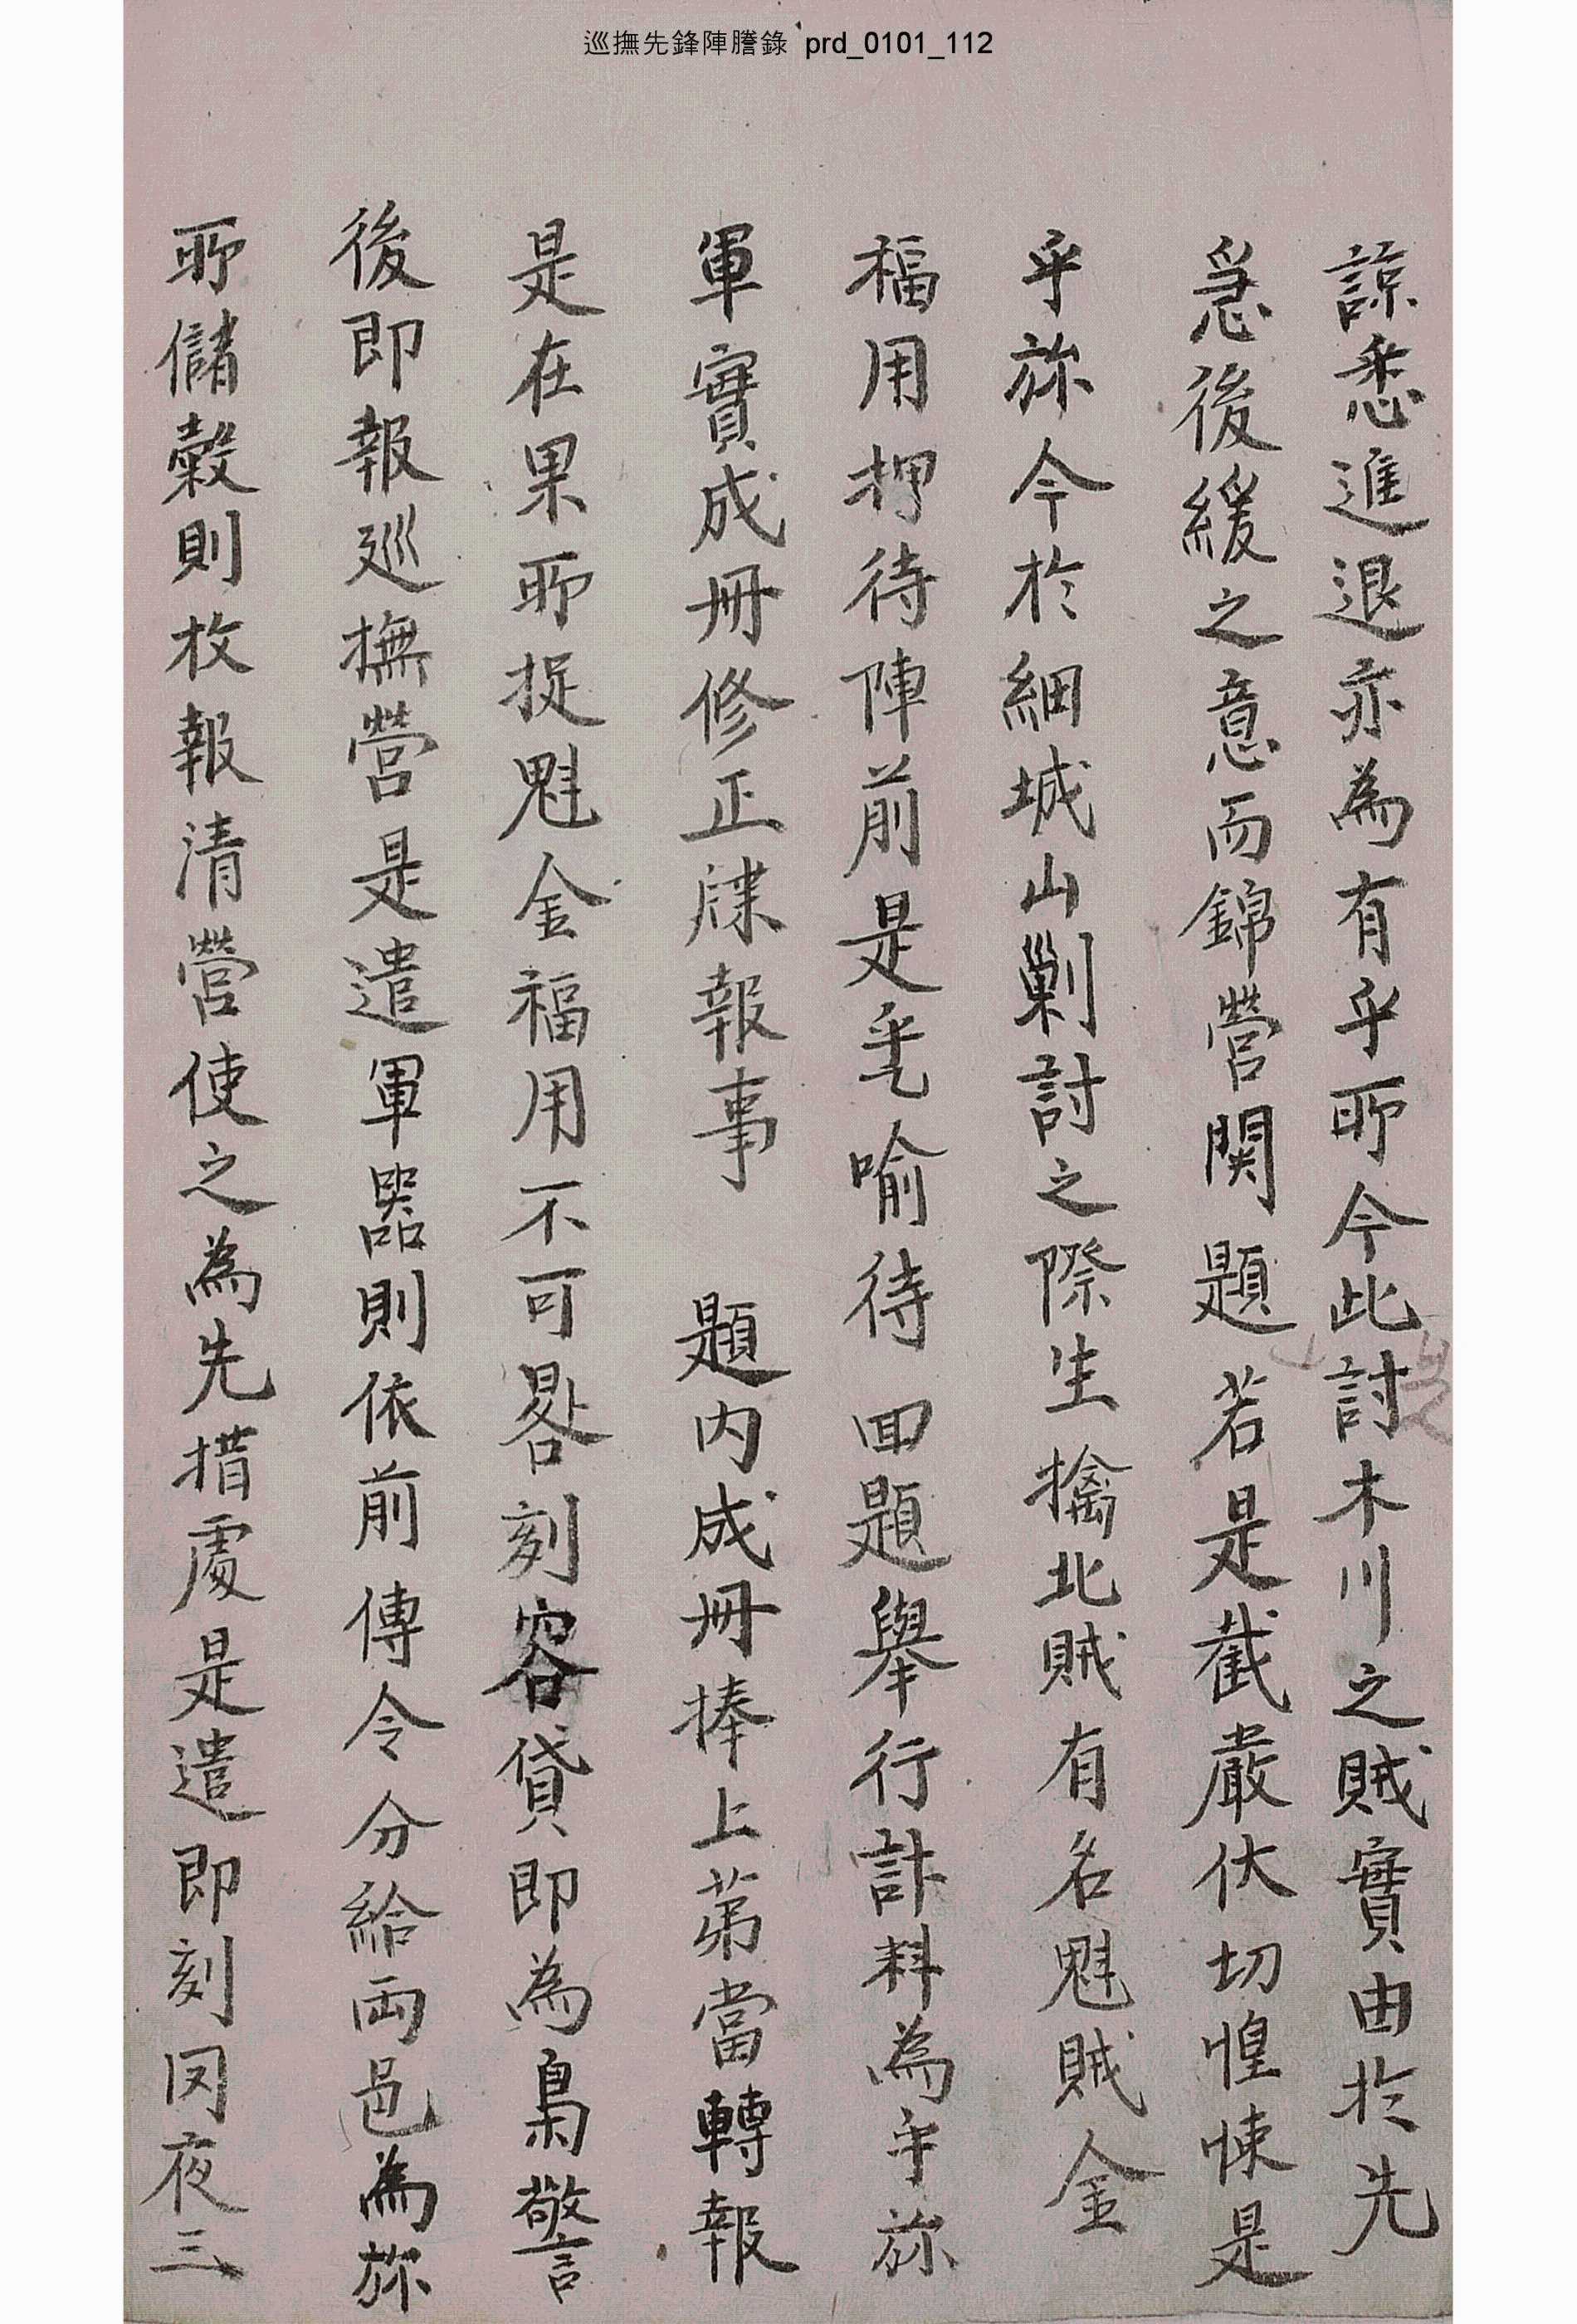 巡撫先鋒陣謄錄 prd_0101_112
諒悉進退亦為有乎所今此討木川之賊實由於先
急後緩之意而錦營関題若是截嚴伏切惶悚是
乎旀今於細城山剿討之際生擒北賊有名魁賊金
福用押待陣前是乎喩待回題擧行計料為乎旀
軍實成冊修正牒報事 題內成冊捧上苐當轉報
是在果所捉魁金福用不可晷刻容貸即為梟警
後即報巡撫營是遣軍器則依前傳令分給両邑為旀
所儲穀則枚報清營使之為先措處是遣即刻罔夜三